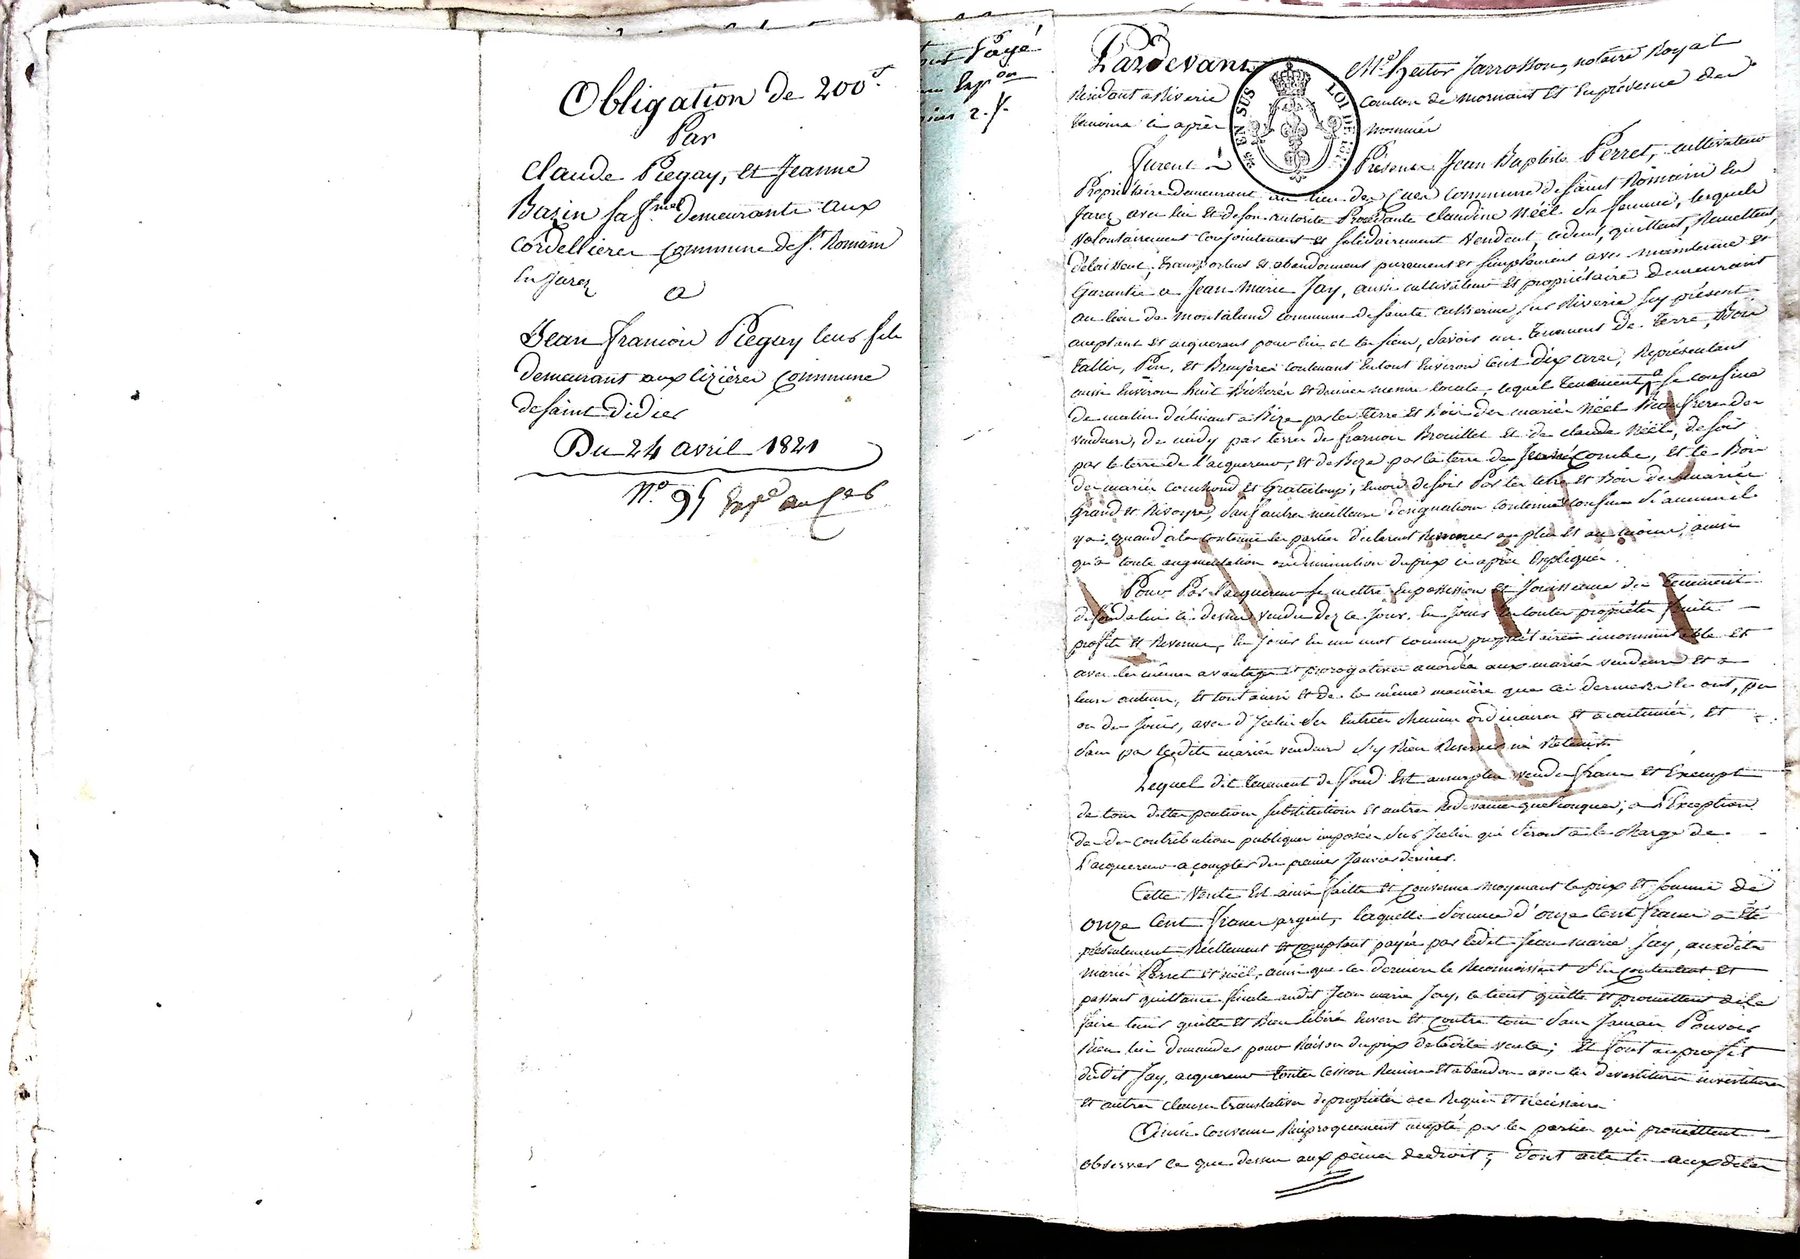 Obligation de 200f.
Par
Claude Piegay, et Jeanne
Bazin sa fme demeurants aux
Cordellieres Commune de St. Romain
En Jarez
a
Jean François Piégay leur fils
demeurant aux Lizières Commune
de Saint Didier
Du 24 avril 1821
N.o 95
Payé
2. f.
EN SUS
LOI DE
Pardevant Me. hector Jarrosson, notaire Royal
Résidant à Riverie Canton de Mornant Et En présence des
témoins ci après nommés
furent Présens Jean Baptiste Perret, cultivateur
Propriétaire demeurant au lieu des Commune de Saint Romain En
Jarez avec lui et de son autorité Procédante Claudine Néel Sa femme, lesquels
volontairement conjointement et solidairement vendent, cedent, quittent, Remettent,
délaissent, transportent et abandonnent purement et simplement avec maintenue et
Garantie a Jean Marie Jay, aussi cultivateur Et propriétaire demeurant
au lieu de Montaland commune de Sainte Catherine sur Riverie Jay présent
acceptant et acquerant pour lui et les siens, Savoir un tenement de terre, Bois
Taillis, Pin, et Bruyères contenant En tout Environ Cent dix ares, Représentant
aussi Environ huit Bicherées et demie mesure locale, lequel tenement Se confine
de matin declinant a Bize par les terre Et Bois des mariés Néel Beau frere des
vendeurs, de midy par terres de françois Brouillet Et de claude Néel, de soir
par la terre de l'acquereur, et de Bize par la terre de Jean Combe, et le Bois
des mariés Couchoud et Grataloup, Encore de soir Par les terre et Bois des mariés
Grand et Rivoyre, Sauf autres meilleurs désignations contenue Et confins S'aucuns il
y a, quand à la contenue les parties déclarent Renoncer au plus Et au moins, ainsi
qu'a toute augmentation ou diminution du prix ci après Expliqué.
Pour Par l'acquereur se mettre En possession et Jouissance du tenement
de fond a lui ci dessus vendu dez ce Jour, En Jouir En toutes propriétés fruits
profits Et Revenus, En Jouir En un mot comme propriétaire incommutable et
avec les mêmes avantages et prérogatives accordés aux mariés vendeurs et a
leurs auteurs, Et tout ainsi Et de la même manière que ces derniers En ont, pu
ou dû Jouir, avec d'Icelui Ses Entrées chemins ordinaires Et accoutumés, Et
Sans par lesdits mariés vendeurs S'y Rien Reserver ni Retenir.
Lequel dit tenement de fond Est au surplus vendu franc Et Exempt
de tous dettes pentions substitutions et autres Redevances quelconques, a l'Exception
des Contributions publiques imposées Sur Icelui qui Seront a la Charge de
L'acquereur a compter du premier Janvier dernier.
Cette Vente Est ainsi faitte Et Convenue moyenant le prix Et Somme de
onze Cent francs argent, laquelle Somme d'onze Cent francs a Eté
présentement Réellement Et comptant payée par ledit Jean Marie Jay, auxdits
mariés Perret et Néel, ainsi que ces derniers le Reconnoissent S'En Contentent Et
passent quittance finale audit Jean Marie Jay, le tient quitte Et promettent de le
faire tenir quitte Et Bien libéré Envers Et Contre tous Sans Jamais Pouvoir
Rien lui demander pour Raison du prix de ladite vente; Et font au profit
dudit Jay, acquereur toutes Cession Remise Et abandon avec les devestitures investitures
Et autres clauses translatives de propriétés ace Requis Et nécessaire.
Ainsi Convenu Réciproquement accepté par les parties qui promettent
observer ce que dessus aux peines de droit; Dont acte les auxdites